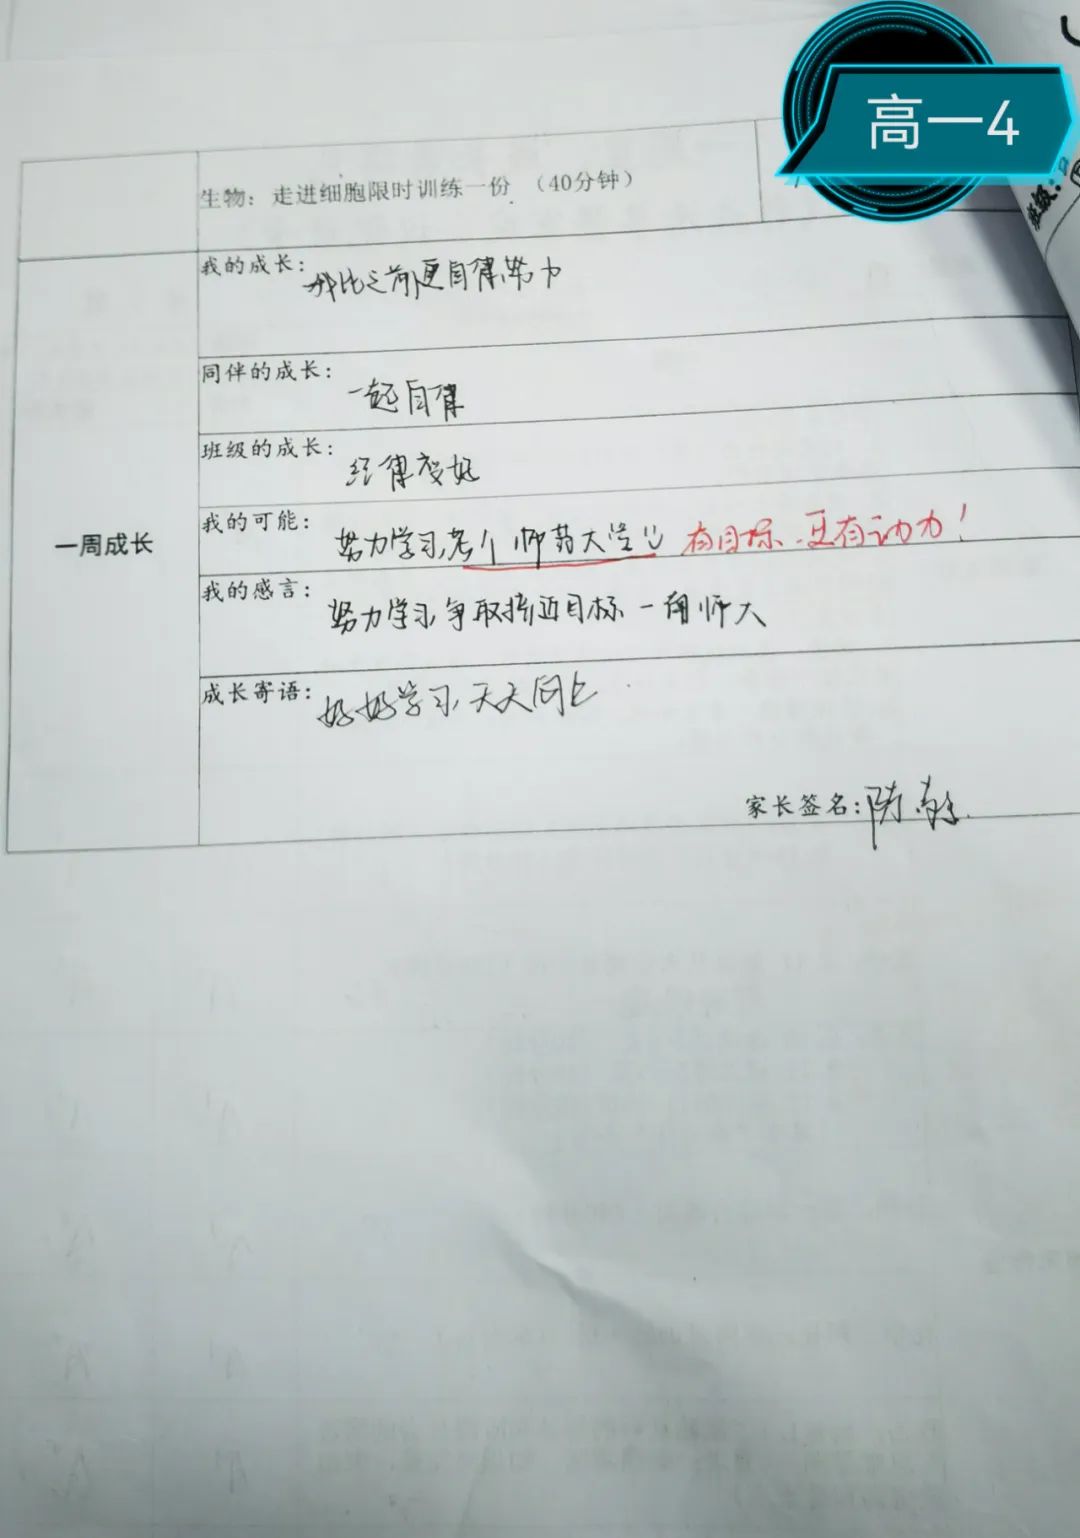 高一4
班级:
生物：走进细胞限时训练一份 （40分钟）
一周成长
我的成长: 我比之前更自律努力
同伴的成长: 一起自律
班级的成长: 纪律变好
我的可能: 努力学习,考个师范大学 有目标.更有动力!
我的感言: 努力学习,争取接近目标一南师大
成长寄语: 好好学习,天天向上
家长签名: